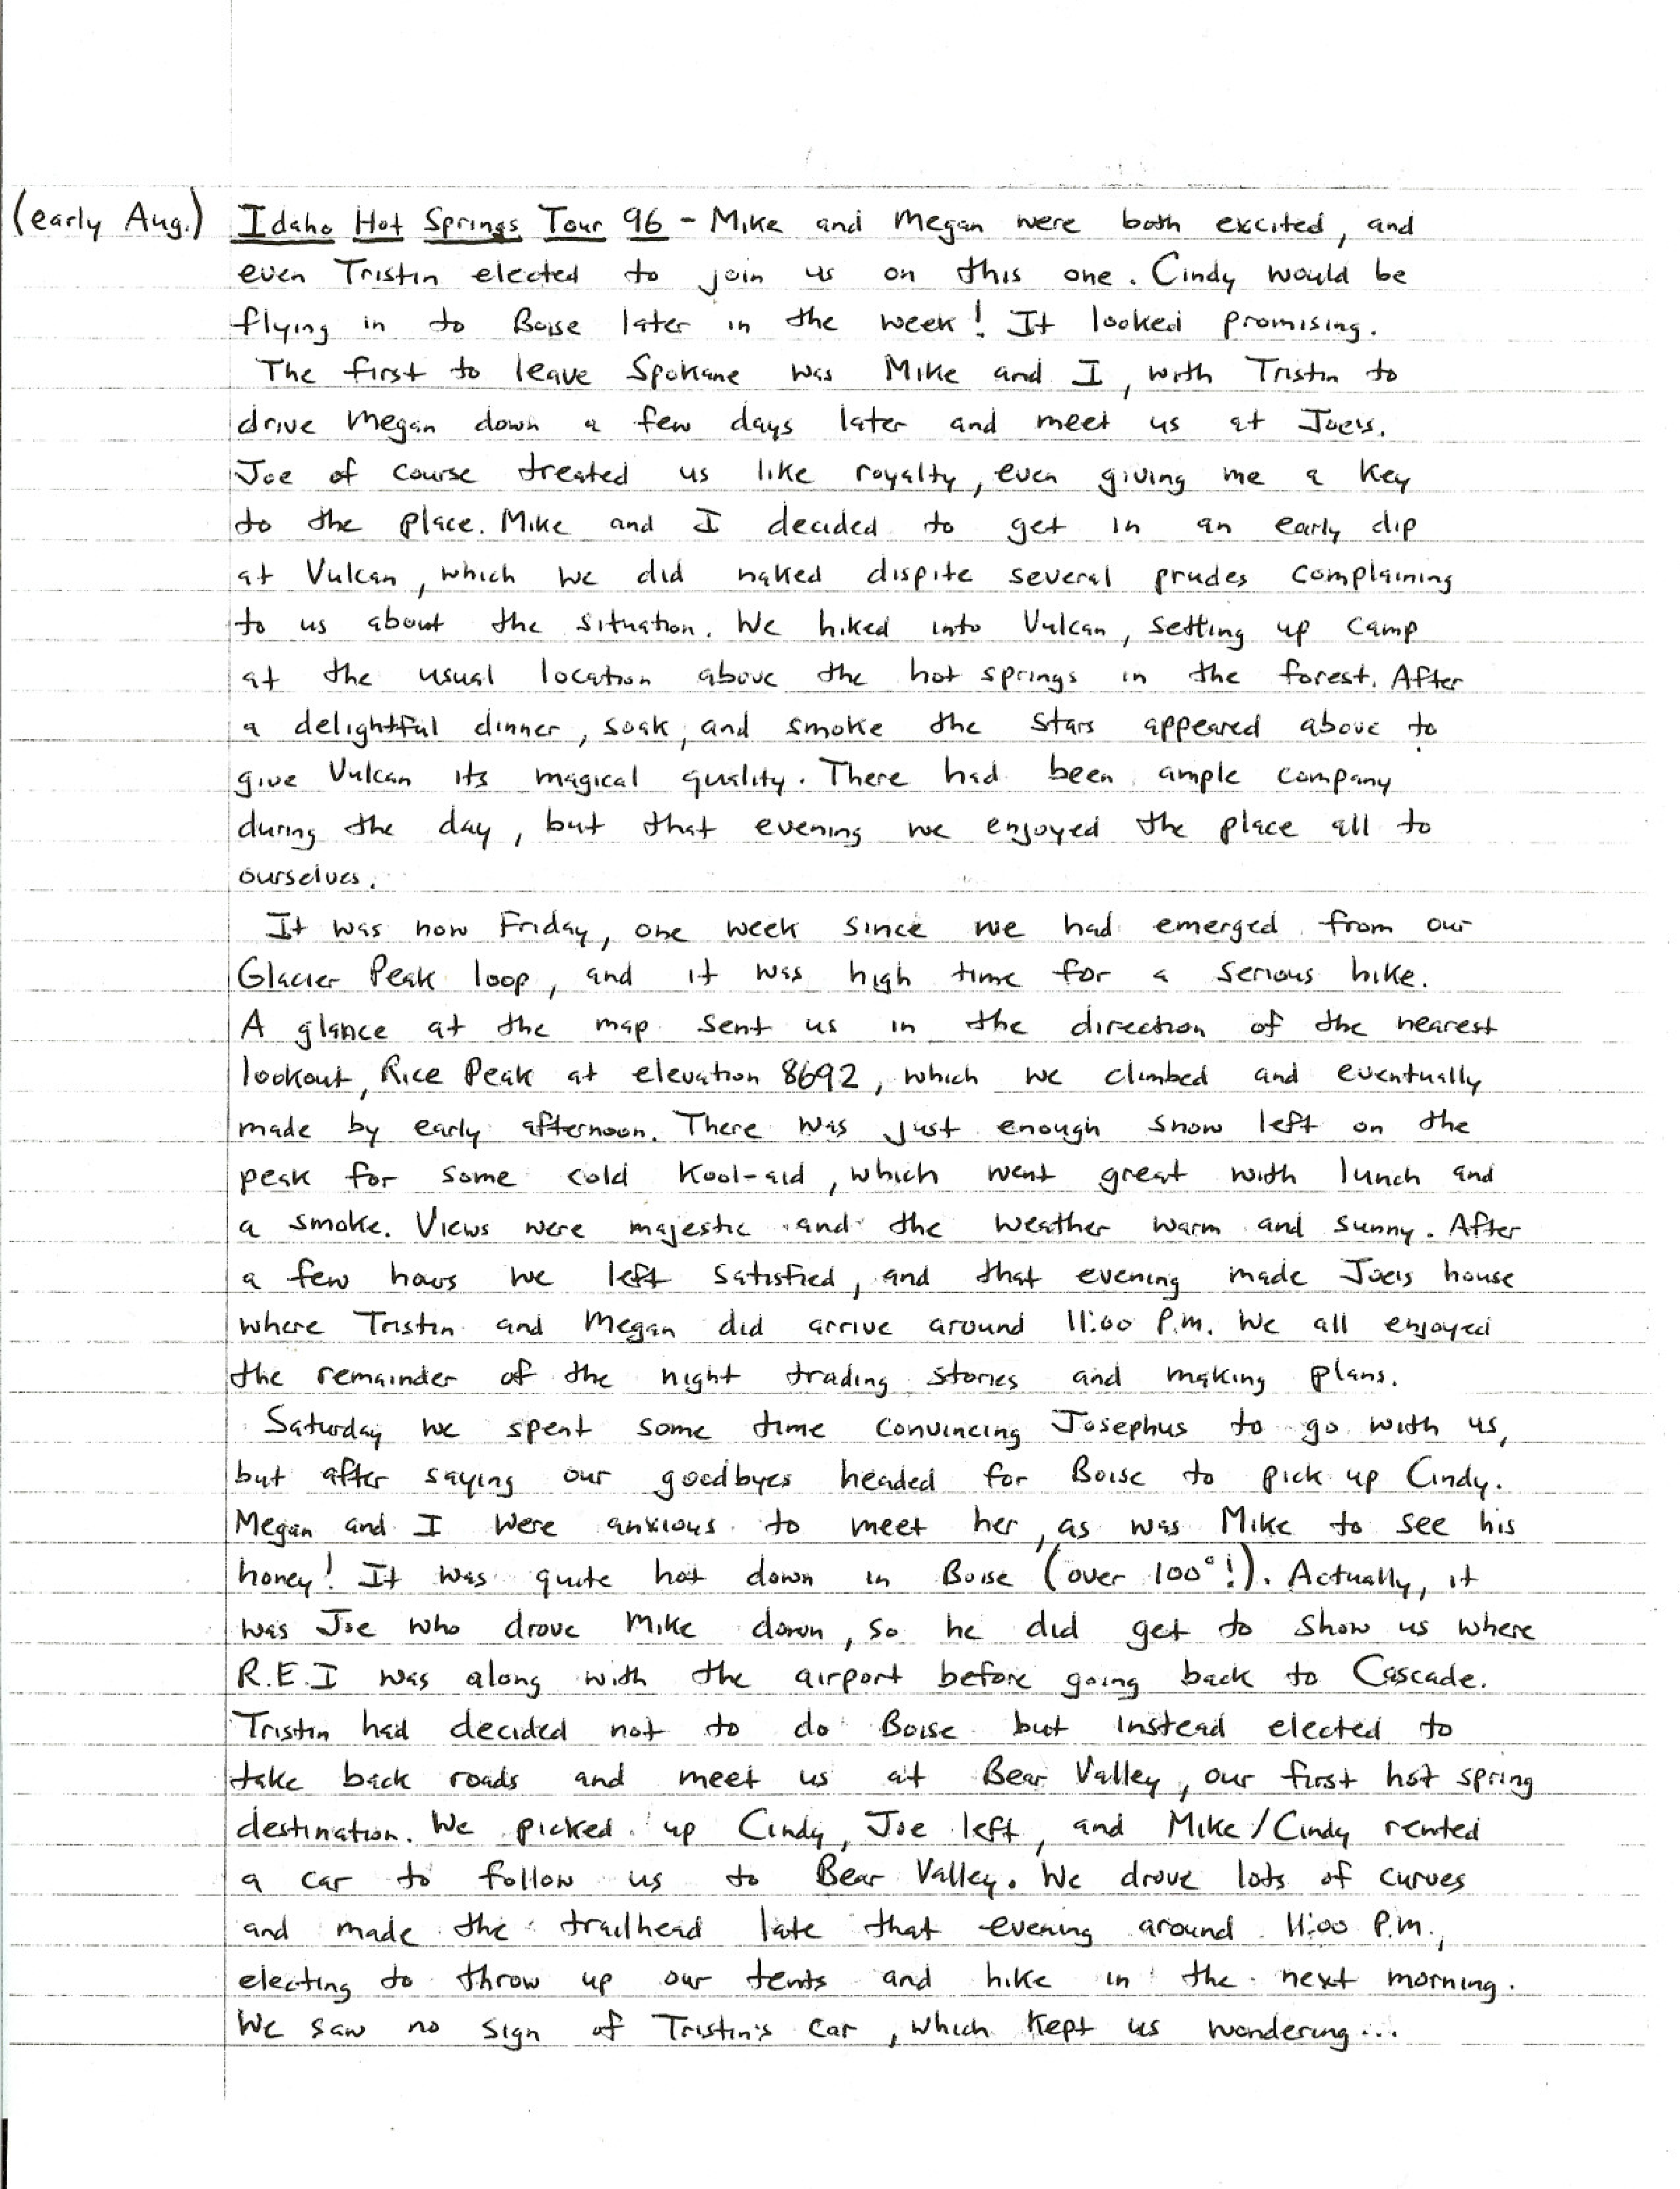 (early Aug.) Idaho Hot Springs Tour 96 - Mike and Megan were both excited, and
even Tristin elected to join us on this one. Cindy would be
flying in to Boise later in the week! It looked promising.
The first to leave Spokane was Mike and I, with Tristin to
drive Megan down a few days later and meet us at Joe's.
Joe of course treated us like royalty, even giving me a key
to the place. Mike and I decided to get in an early dip
at Vulcan, which we did naked dispite several prudes complaining
to us about the situation. We hiked into Vulcan, setting up camp
at the usual location above the hot springs in the forest. After
a delightful dinner, soak, and smoke the stars appeared above to
give Vulcan its magical quality. There had been ample company
during the day, but that evening we enjoyed the place all to
ourselves.
It was now Friday, one week since we had emerged from our
Glacier Peak loop, and it was high time for a serious hike.
A glance at the map sent us in the direction of the nearest
lookout, Rice Peak at elevation 8692, which we climbed and eventually
made by early afternoon. There was just enough snow left on the
peak for some cold Kool-aid, which went great with lunch and
a smoke. Views were majestic and the weather warm and sunny. After
a few hours we left satisfied, and that evening made Joe's house
where Tristin and Megan did arrive around 11:00 P.m. We all enjoyed
the remainder of the night trading stories and making plans.
Saturday we spent some time convincing Josephus to go with us,
but after saying our goodbyes headed for Boise to pick up Cindy.
Megan and I were anxious to meet her, as was Mike to see his
honey! It was quite hot down in Boise (over 100°!). Actually, it
was Joe who drove Mike down, so he did get to show us where
R.E.I was along with the airport before going back to Cascade.
Tristin had decided not to do Boise but instead elected to
take back roads and meet us at Bear Valley, our first hot spring
destination. We picked up Cindy, Joe left, and Mike/Cindy rented
a car to follow us to Bear Valley. We drove lots of curves
and made the trailhead late that evening around 11:00 P.m.,
electing to throw up our tents and hike in the next morning.
We saw no sign of Tristin's car, which kept us wondering...